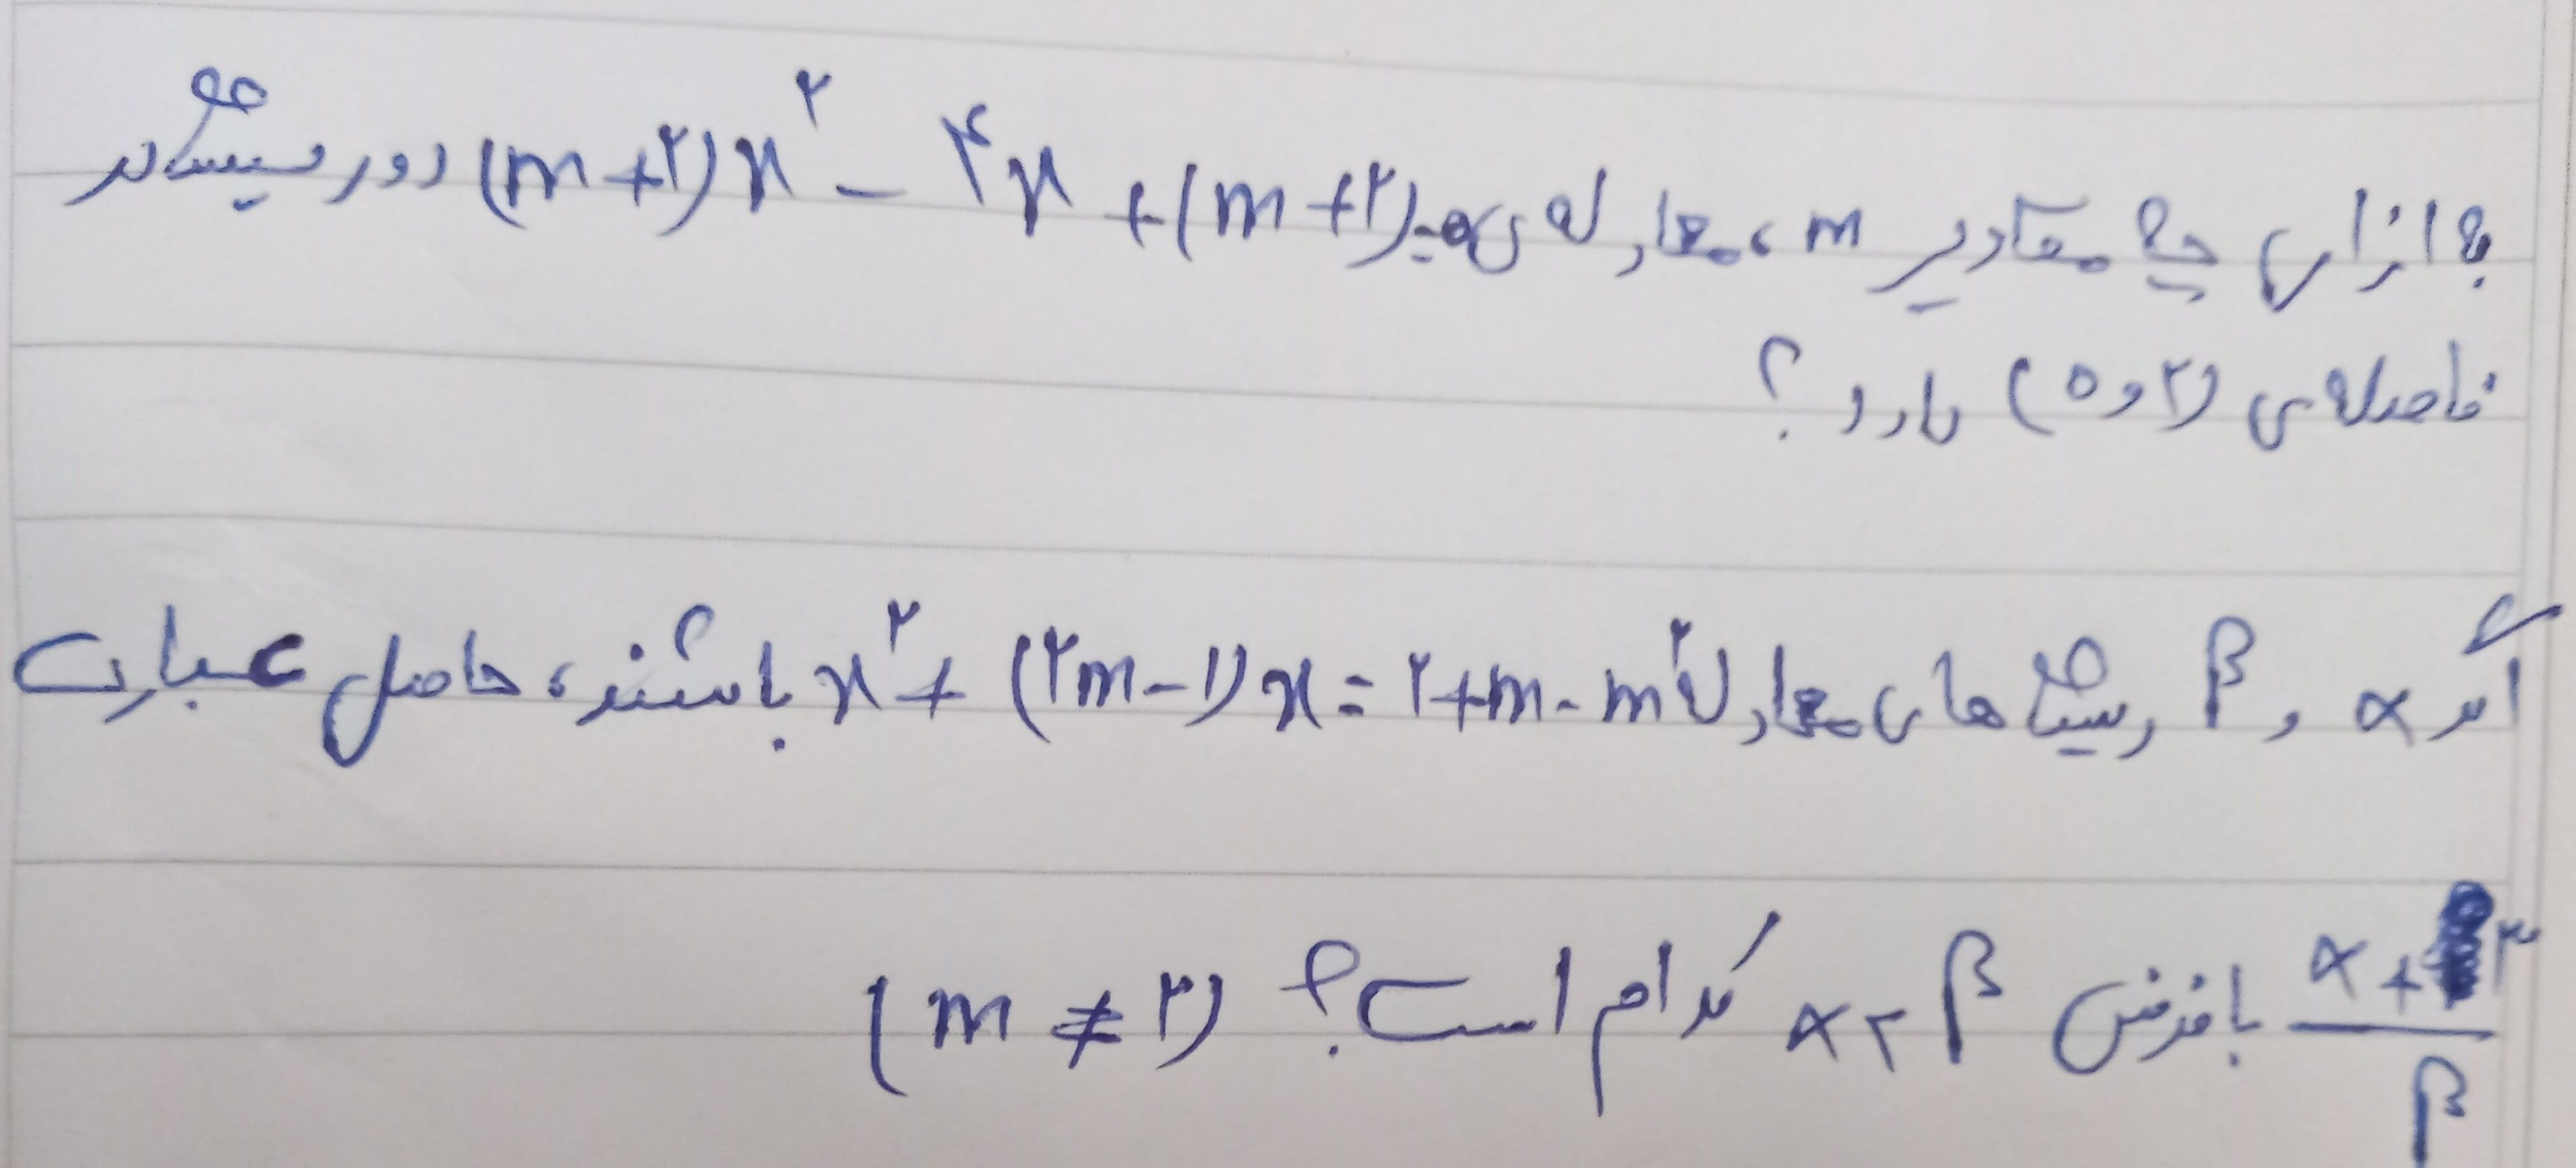 به ازای چه مقادیر m، معادله‌ی (m+۲)x² - ۴x + (m+۲)=۰ دو ریشه در
فاصله‌ی (۲ و ۰) دارد؟
اگر α و β ریشه‌های معادله x² + (۲m-۱)x = ۲+m-m² باشند، حاصل عبارت
(α+۳)/β با فرض α<β کدام است؟ (m ≠ ۲)